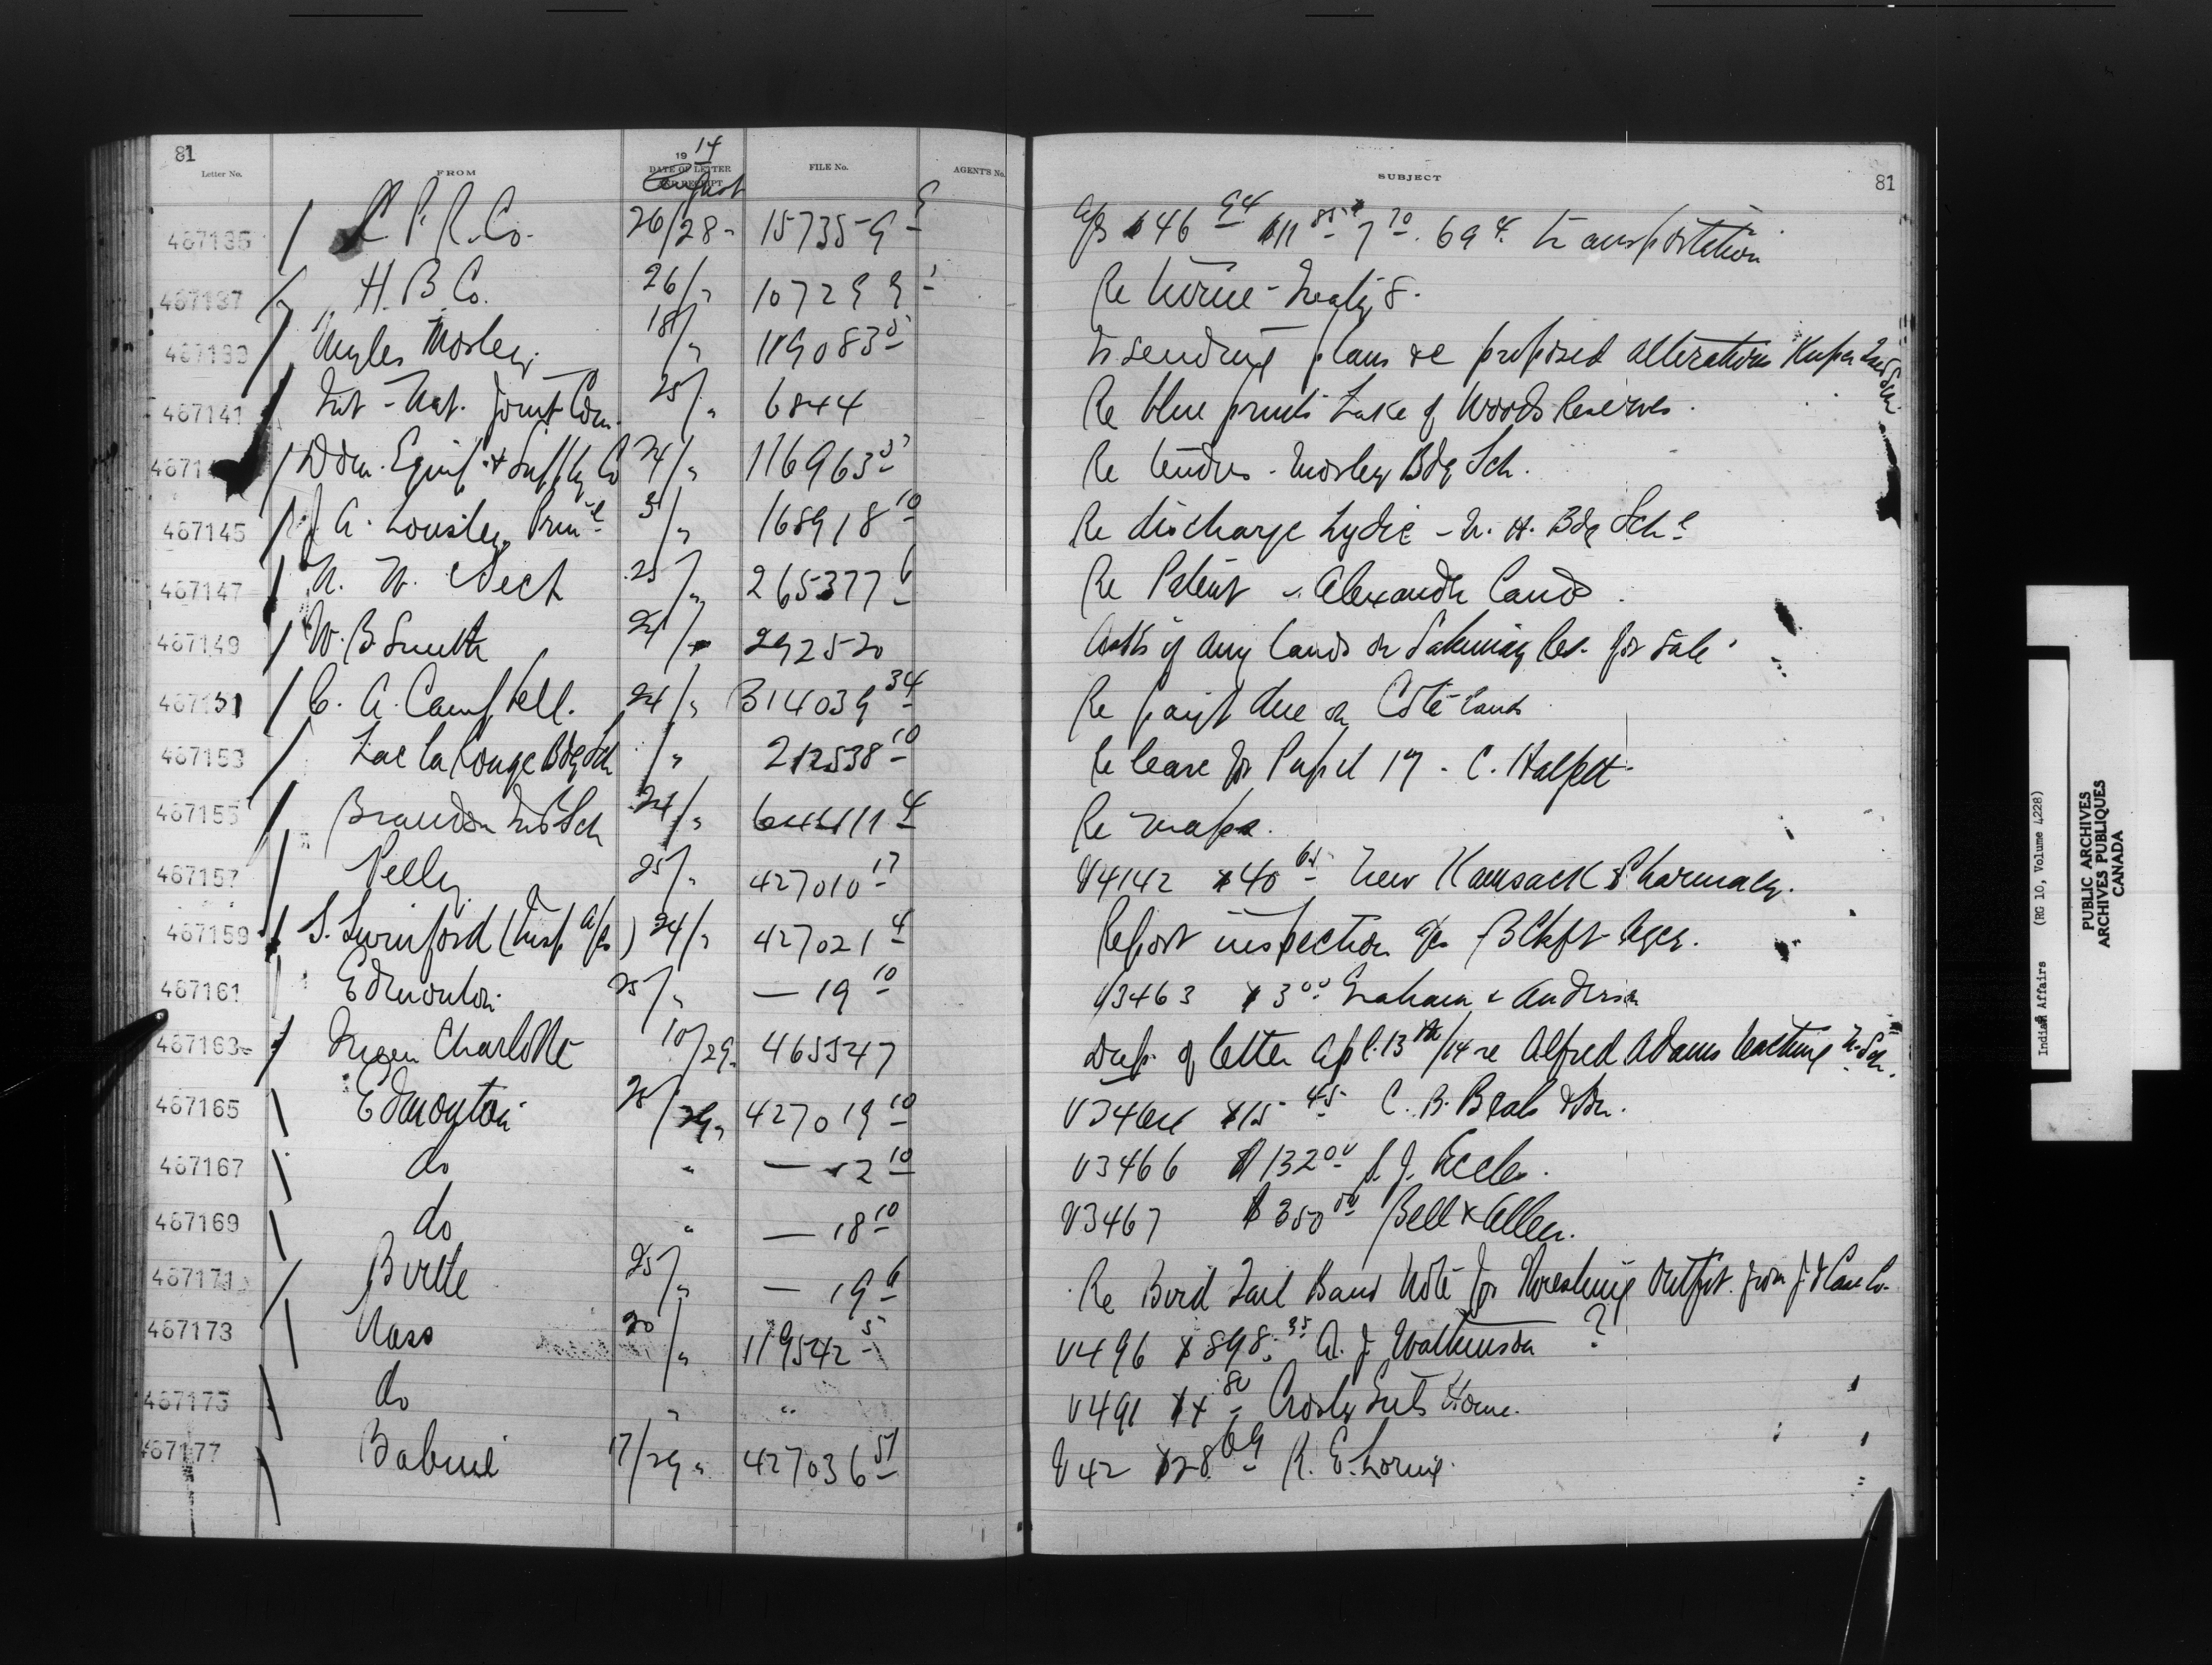 81
Letter No. FROM 1914 DATE OF LETTER AND RECEIPT August FILE No. AGENT'S No. SUBJECT 81
467135 C. P. R. Co. 26/28 157355-9 9 a/cs $46 94 $11 85 7 70. 69 4. transportation
467137 H. B. Co. 26/" 107299 1 Re - Treaty 8.
Myles Morley. 18/" 119083 5 plans re proposed alterations Kuper Ind Sch
467141 Int-Nat. Joint Com. 25/" 6844 Re blue prints Lake of Woods Reserves.
4671 Dom. Equip. & Supply Co 24/" 116963 5 Re tenders - Morley Bdg Sch.
467145 J. A. Lousley, Prin'l 3/" 168918 10 Re discharge Lydie - N. H. Bdg Sch'l
467147 25/" 265377 6 Re Patent - Alexander lands.
467149 W. B. Smith 24/" 292520 Asks if any lands on Sakimay Res. for sale.
467151 C. A. Campbell. 24/" 314039 34 Re paym't due on Coté lands
467153 Lac la Ronge Bdg Sch " 212538 10 Re leave for Pupil 19 - C. Halkett
467155 Brandon Ind Sch 24/" 4 Re maps.
467157 Pelly. 25/" 427010 17 V4142 $40 65 New Kamsack Pharmacy.
467159 S. Swinford (Insp. a/cs) 24/" 427021 4 Report inspection a/cs Agcy.
467161 Edmonton 25/" — 19 10 V3463 $3 00 Graham & Anderson
467163 Queen Charlotte 10/29 465547 Dup. of letter Apl. 13th/14 re Alfred Adams teaching N. Sch.
467165 Edmonton 25/29 427019 10 V3464 $15 45 C. B. Beals & Son.
467167 do " — 12 10 V3466 $132 00 S. J. Eccles.
467169 do " — 18 10 V3467 $350 00 Bell & Allen.
467171 Birtle 25/" — 19 6 Re Bird Tail Band Note for Threshing Outfit from J. I. Case Co.
467173 Nass 20/" 119542 5 V496 $898.35 A. J. Watkinson ?
467175 do " " V491 $4 80 Crosby Girls Home.
467177 Babine 17/29 427036 51 V42 $28 69 R. E. Loring.
Indian Affairs (RG 10, Volume 4228)
PUBLIC ARCHIVES
ARCHIVES PUBLIQUES
CANADA